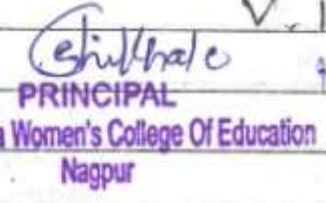 V.
PRINCIPAL
Women's College Of Education
Nagpur